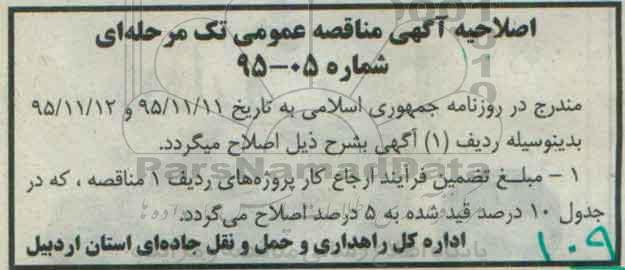 اصلاحیه آگهی مناقصه عمومی تک مرحله‌ای
شماره ۰۵-۹۵
مندرج در روزنامه جمهوری اسلامی به تاریخ ۹۵/۱۱/۱۱ و ۹۵/۱۱/۱۲
بدینوسیله ردیف (۱) آگهی بشرح ذیل اصلاح میگردد.
ParsNamadData
۱ - مبلغ تضمین فرآیند ارجاع کار پروژه‌های ردیف ۱ مناقصه ، که در
جدول ۱۰ درصد قید شده به ۵ درصد اصلاح می‌گردد.
اداره کل راهداری و حمل و نقل جاده‌ای استان اردبیل
۱۰۹